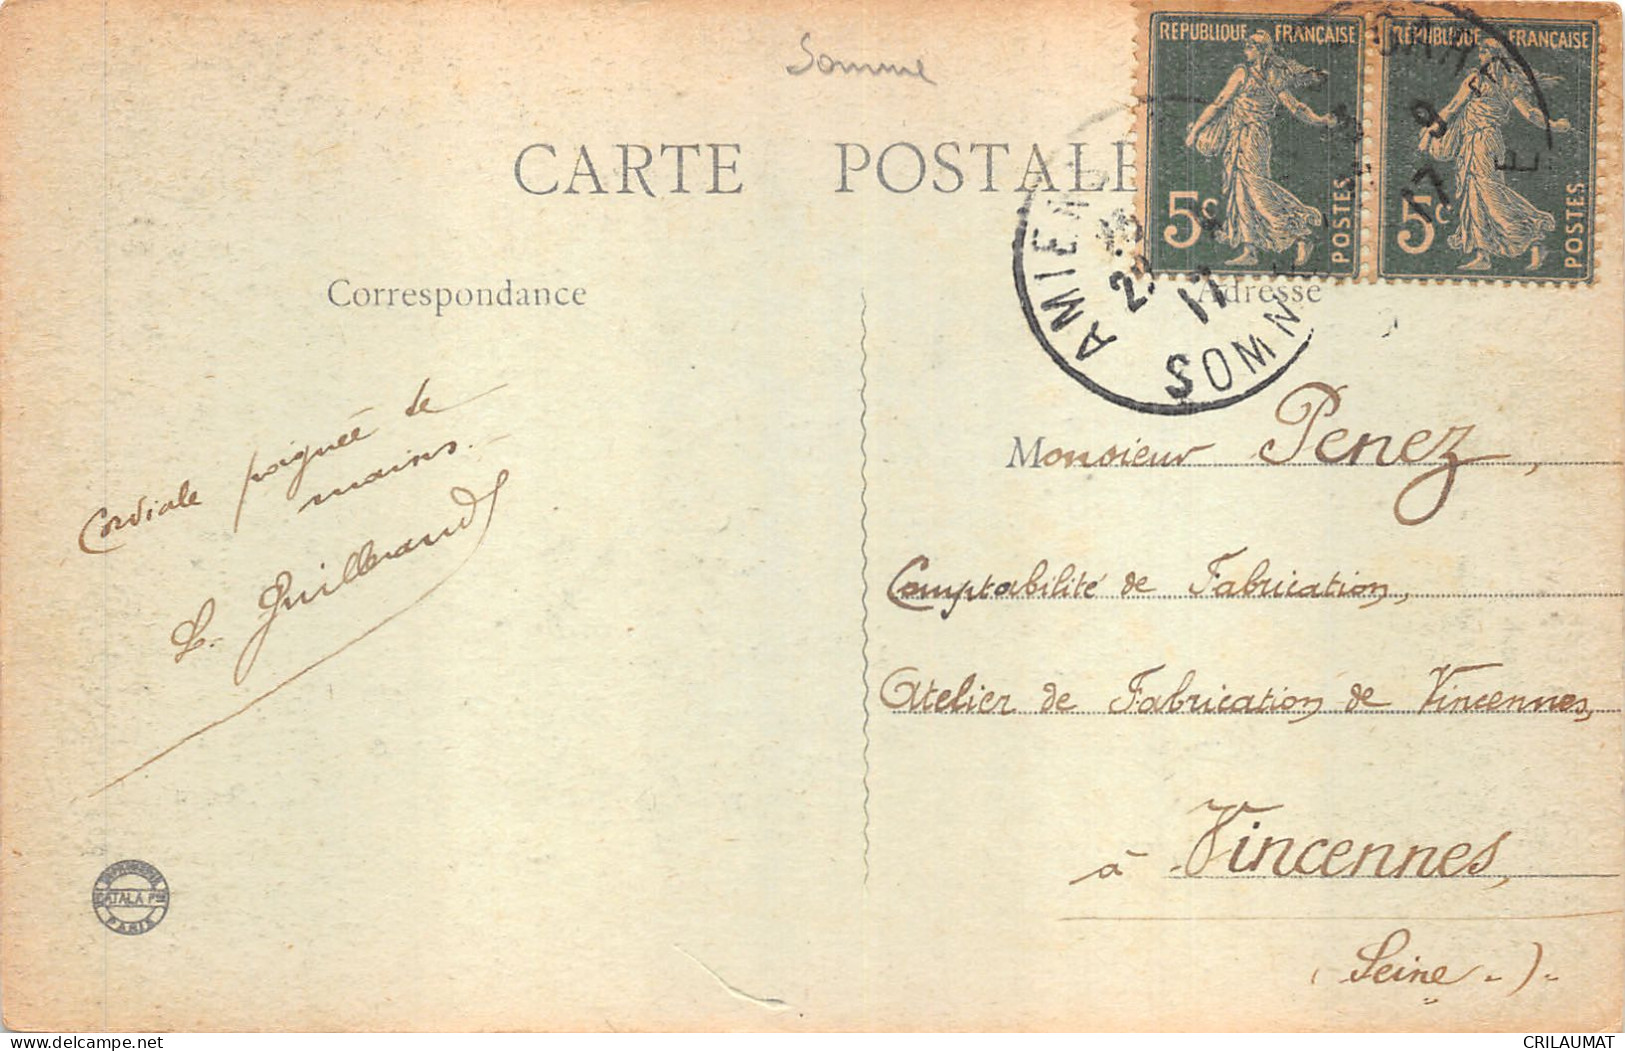 Somme
CARTE POSTALE
REPUBLIQUE FRANÇAISE
5c
POSTES
REPUBLIQUE FRANÇAISE
5c
POSTES
17
AMIENS
17
SOMME
Correspondance
Adresse
Cordiale poignée de
mains.
L. Guillerand
Monsieur Penez,
Comptabilité de Fabrication,
Atelier de Fabrication de Vincennes,
à Vincennes,
(Seine.)
CATALA Fres
PARIS
delcampe.net
CRILAUMAT